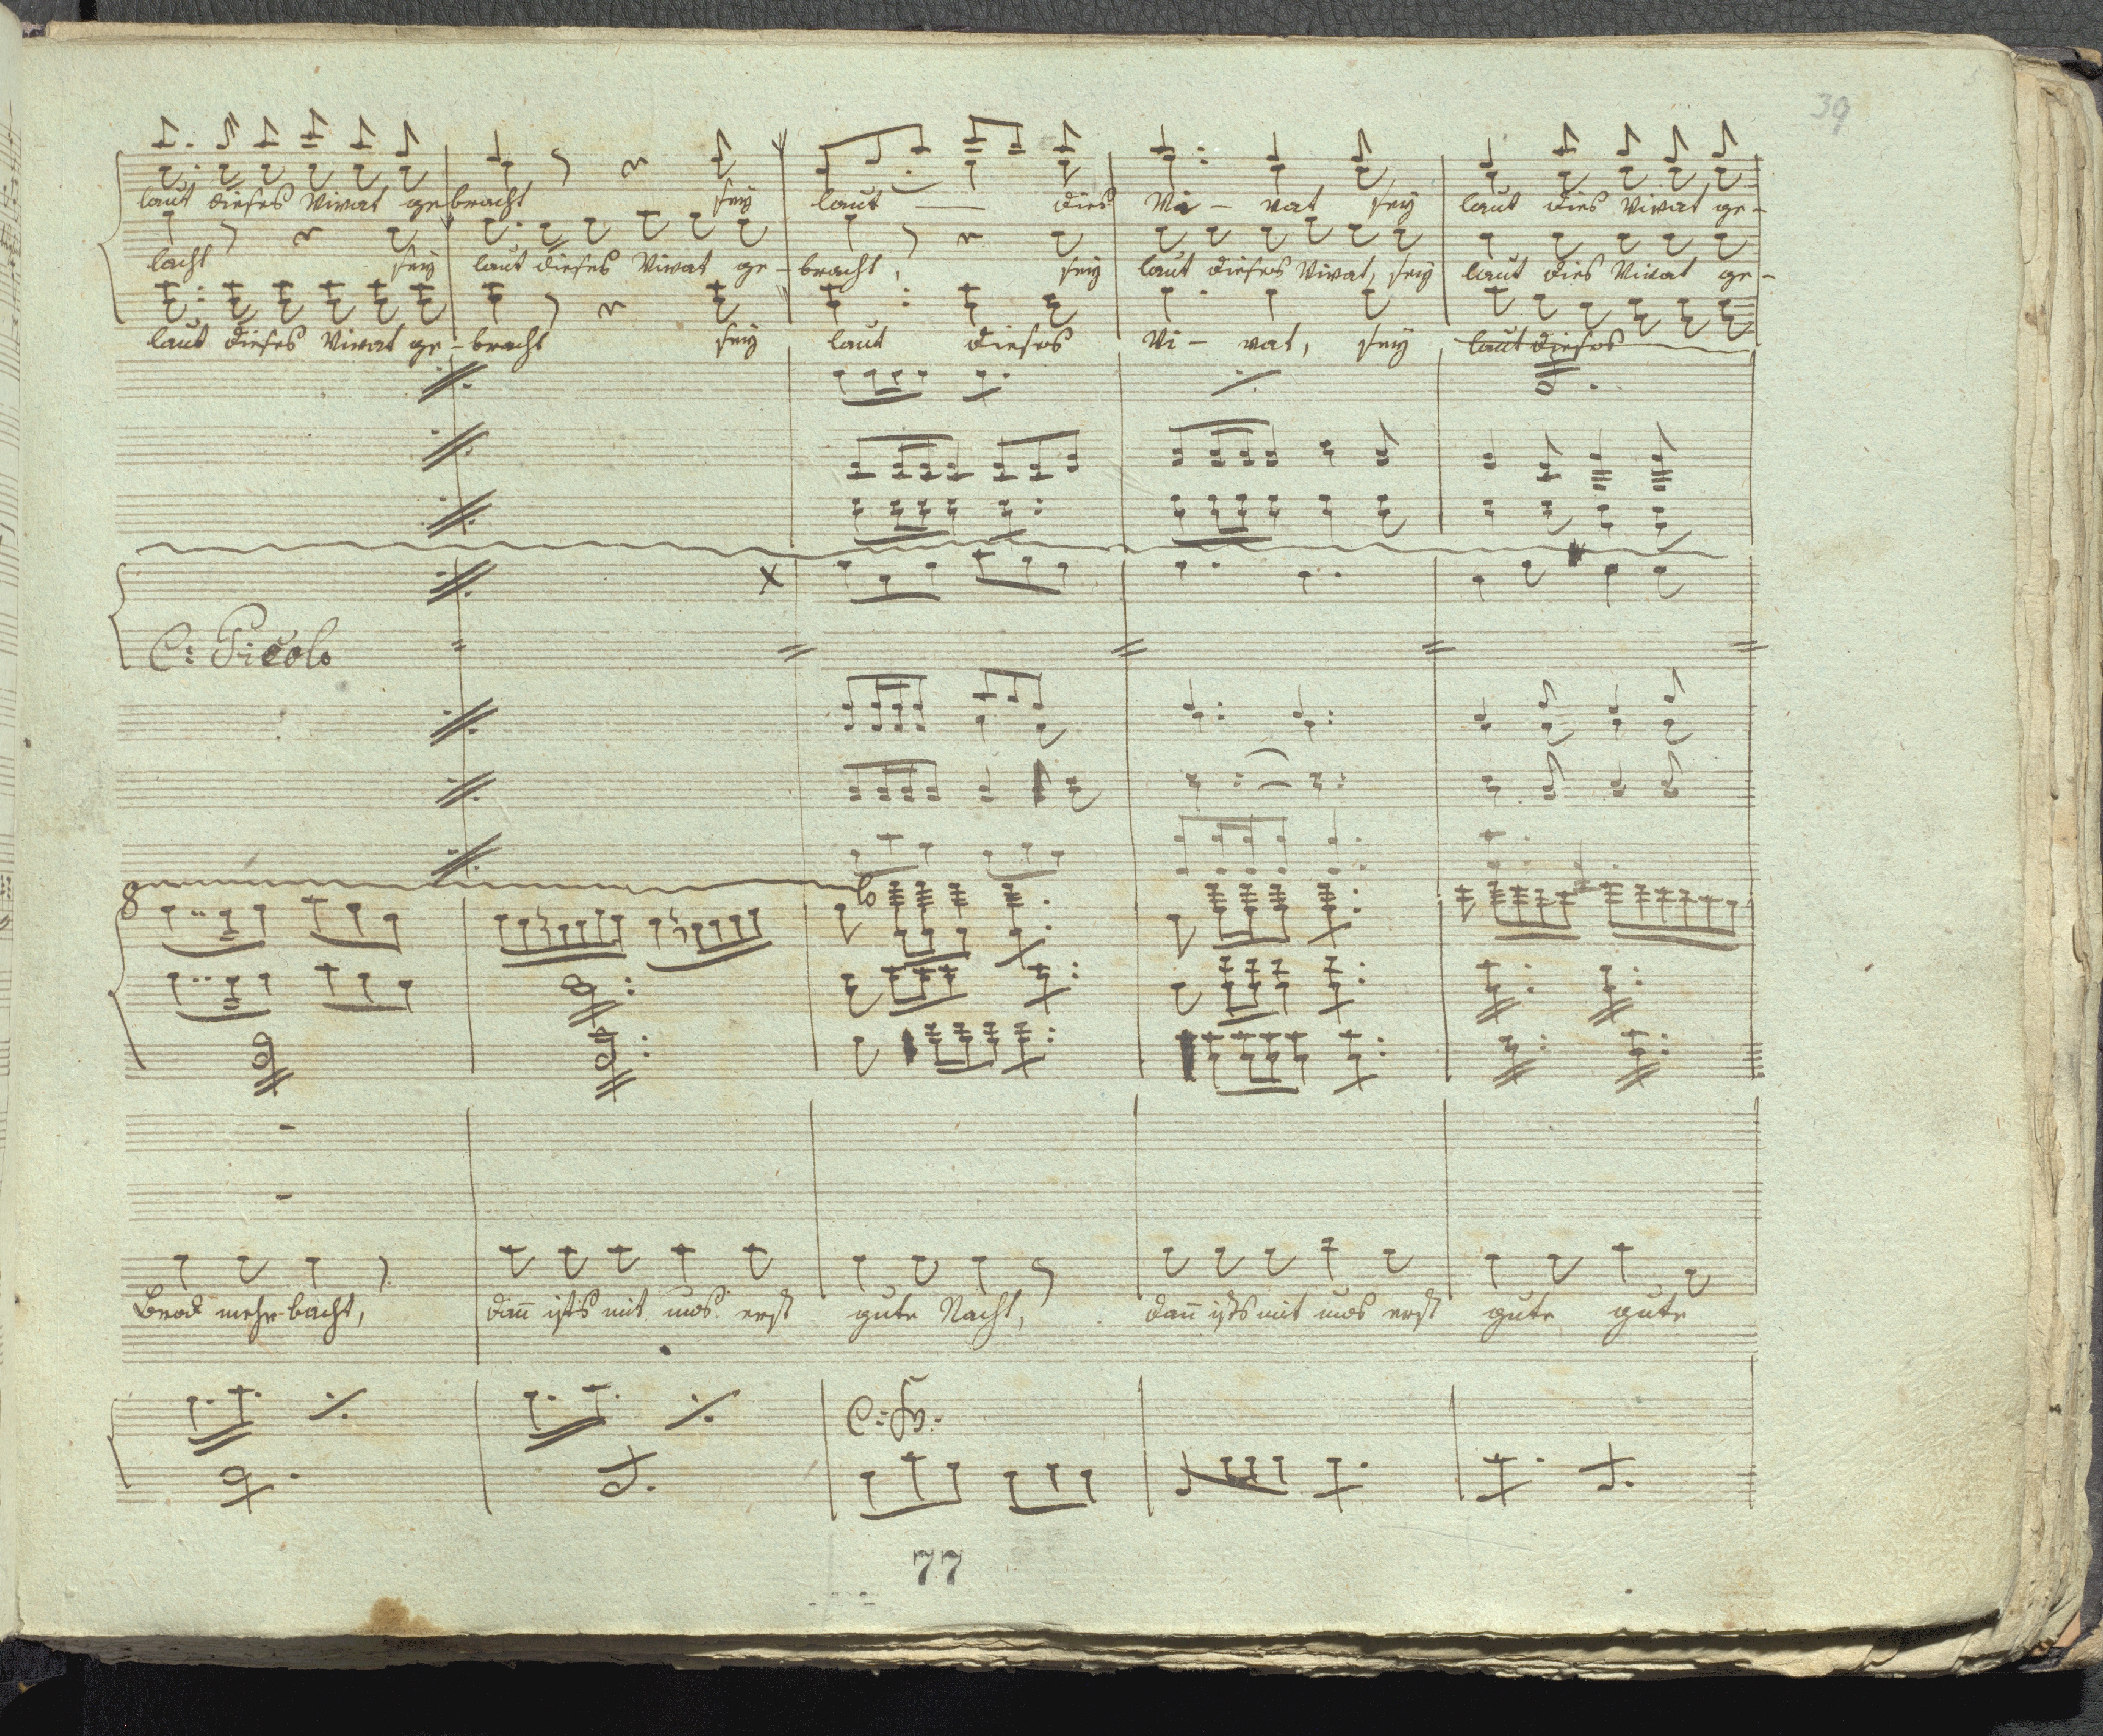 39
laut dieses Vivat gebracht sey laut — dies Vi - vat sey laut dies Vivat ge-
lacht sey laut dieses Vivat ge - bracht, sey laut dieses Vivat, sey laut dies Vivat ge-
laut dieses Vivat ge - bracht sey laut dieses Vi - vat, sey laut dieses
C: Picolo
8 lo
Brod mehr bacht, dañ ists mit uns erst gute Nacht, dañ ists mit uns erst gute gute
77